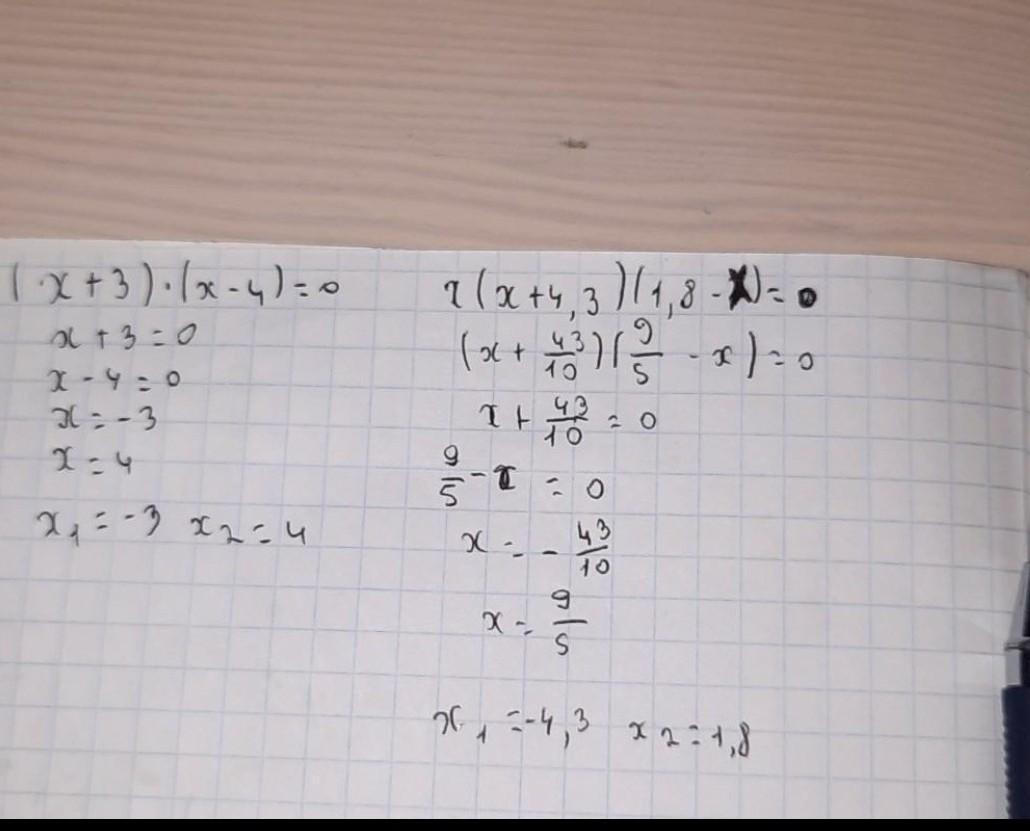 (x+3)·(x-4)=0
x+3=0
x-4=0
x=-3
x=4
x₁=-3 x₂=4
x(x+4,3)(1,8-x)=0
(x+43/10)(9/5-x)=0
x+43/10=0
9/5-x=0
x=-43/10
x=9/5
x₁=-4,3 x₂=1,8